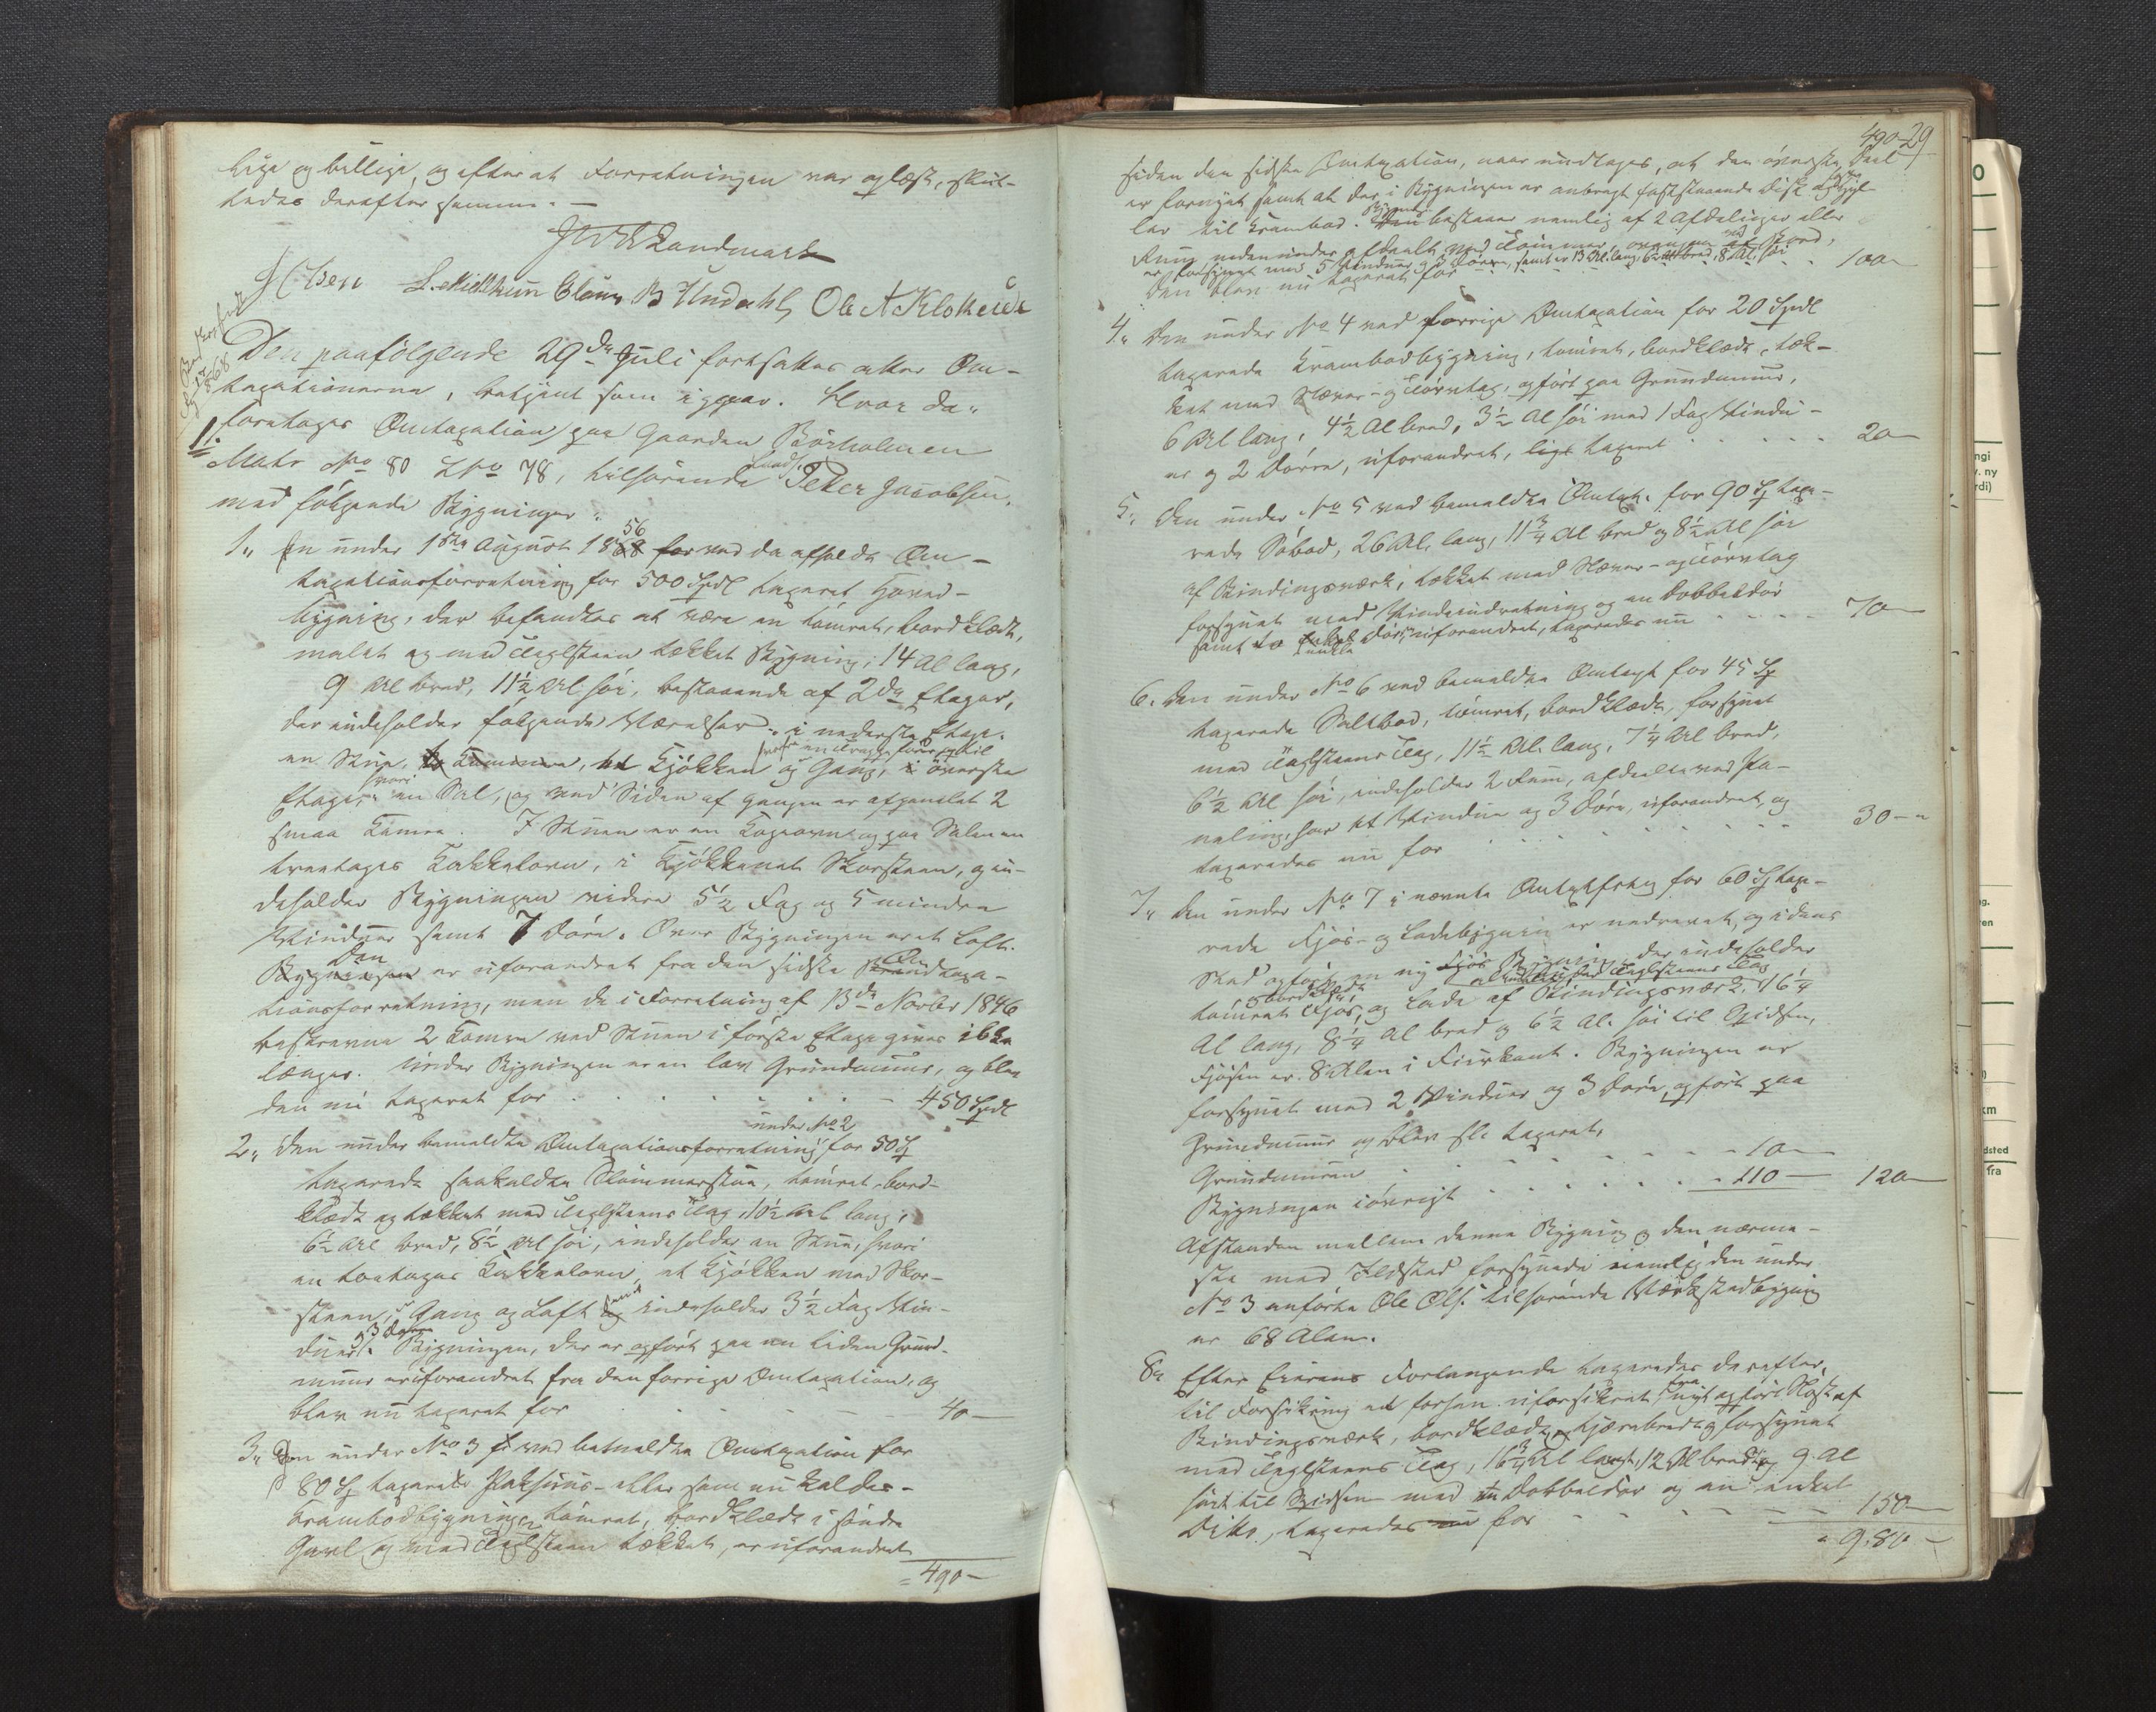 lige og billige, og efter at Forretningen var oplæst, slut-
tedes derefter samme. —
Landmark
S. Mælkun Claus B Undahl, Ole A Kloksein
Den paafølgende 29de Juli fortsattes atter Om-
taxationerne, betjent som igaar. Hvor da
foretages Omtaxation paa Gaarden Børholmen
1.
Matr No 80 LNo 78, tilhørende Landh. Peter Jacobsen,
med følgende Bygninger:
1. En under 1ste August 1856 ved da afholdt Om-
taxationsforretning for 500 Spdl taxeret Hoved-
bygning, der befandtes at være en tømret, bordklædt,
malet og med Teglsteen tækket Bygning, 14 Al lang,
9 Al bred, 11½ Al høi, bestaaende af 2de Etager,
der indeholder følgende Værelser: i nederste Etage
en Stue, et Kjøkken og Gang, hvorfra en Trappe fører op til øverste
Etage, hvori en Sal, og ved Siden af Gangen er afpanelet 2
smaa Kamre. I Stuen er en Kogeovn og paa Salen en
treetages Kakkelovn, i Kjøkkenet Skorsteen, og in-
deholder Bygningen videre 5½ Fag og 5 mindre
Vinduer samt 7 Døre. Over Bygningen er et Loft.
Den er uforandret fra den sidste Omtaxa-
tionsforretning, men de i Forretning af 13de Novbr 1846
beskrevne 2 Kamre ved Stuen i første Etage gives ikke
længer. Under Bygningen er en lav Grundmuur, og blev
den nu taxeret for . . . . . . — 450 Spdl
2. Den under bemeldte Omtaxationsforretning under No 2 for 50 Sp
taxerede saakaldte Skommerstue, tømret, bord-
klædt og tækket med Teglsteens Tag, 10½ Al lang,
6½ Al bred, 8½ Al høi, indeholder en Stue, hvori
en toetages Kakkelovn, et Kjøkken med Skor-
steen, Gang og Loft samt indeholder 3½ Fag Vin-
duer og 3 Døre. Bygningen, der er opført paa en liden Grund-
muur er uforandret fra den forrige Omtaxation, og
blev nu taxeret for . . . . — 40 —
3. Den under No 3 ved bemeldte Omtaxation for
80 Sp taxerede Pakhuus- eller som nu kaldes
Krambodbygning, tømret, bordklædt i søndre
Gavl og med Teglsteen tækket, er uforandret
= 490 —
490 29
siden den sidste Omtaxation, naar undtages, at den øverste Deel
er fornyet samt at der i Bygningen er anbragt faststaaende Disk og Hyl-
ler til Krambod. Bygningen bestaaer nemlig af 2 Afdelinger eller
Rum nedenunder afdeelt med Tømmer, ovenpaa med Bord,
er forsynet med 5 Vinduer og 5 Døre, samt er 13 Al lang, 6½ Al bred, 8 Al. høi
Den blev nu taxeret for . . . . . . 100 —
4. Den under No 4 ved forrige Omtaxation for 20 Spdl
taxerede Krambodbygning, tømret, bordklædt, tæk-
ket med Næver- og Tørvtag, opført paa Grundmuur,
6 Al lang, 4½ Al bred, 3½ Al høi med 1 Fag Vindu-
er og 2 Døre, uforandret, lige taxeret . . . . . . 20 —
5. Den under No 5 ved bemeldte Omtax. for 90 Sp taxe-
rede Søbod, 26 Al. lang, 11¾ Al bred og 8½ Al høi
af Bindingsværk, tækket med Næver- og Tørvtag
forsynet med Vindeindretning og en Dobbeldør
samt to enkle Døre, uforandret, taxeredes nu . . . . 70 —
6. Den under No 6 ved bemeldte Omtaxt for 45 Sp
taxerede Saltbod, tømret, bordklædt, forsynet
med Teglsteens Tag, 11½ Al. lang, 7¼ Al bred,
6½ Al høi, indeholder 2 Rum, afdeelte ved Pa-
neling, har et Vindue og 3 Døre, uforandret, og
taxeredes nu for . . . . . . . . . 30 — "
7. Den under No 7 i nævnte Omtxtfrtng for 60 Sp taxe-
rede Fjøs- og Ladebygning er nedrevet, og i dens
Sted opført en ny Bygning, der indeholder
tømret bordklædt Fjøs, og Lade af Bindingsværk, Teglsteens Tag 16¼
Al lang, 8¼ Al bred og 6½ Al. høi til Gidsen,
Fjøsen er 8 Alen i Fiirkant. Bygningen er
forsynet med 2 Vinduer og 3 Døre, opført paa
Grundmuur og blev slr taxeret,
Grundmuren . . . . . . . 10 —
Bygningen iøvrigt . . . . . . 110 — 120 —
Afstanden mellem denne Bygning og den nærme-
ste med Ildsted forsynede nemlig den under
No 3 anførte Ole Ols. tilhørende Værkstedbygning
er 68 Alen.
8. Efter Eierens Forlangende taxeredes derefter
til Forsikring et forhen uforsikret, nyt opført Nøst af
Bindingsværk, bordklædt, tjærebredt og forsynet
med Teglsteens Tag, 16¾ Al langt, 12 Al bredt og 9 Al
høit til Gidsen med en Dobbeldør og en enkel
Ditto, taxeredes for . . . . . — 150 —
= 980 —